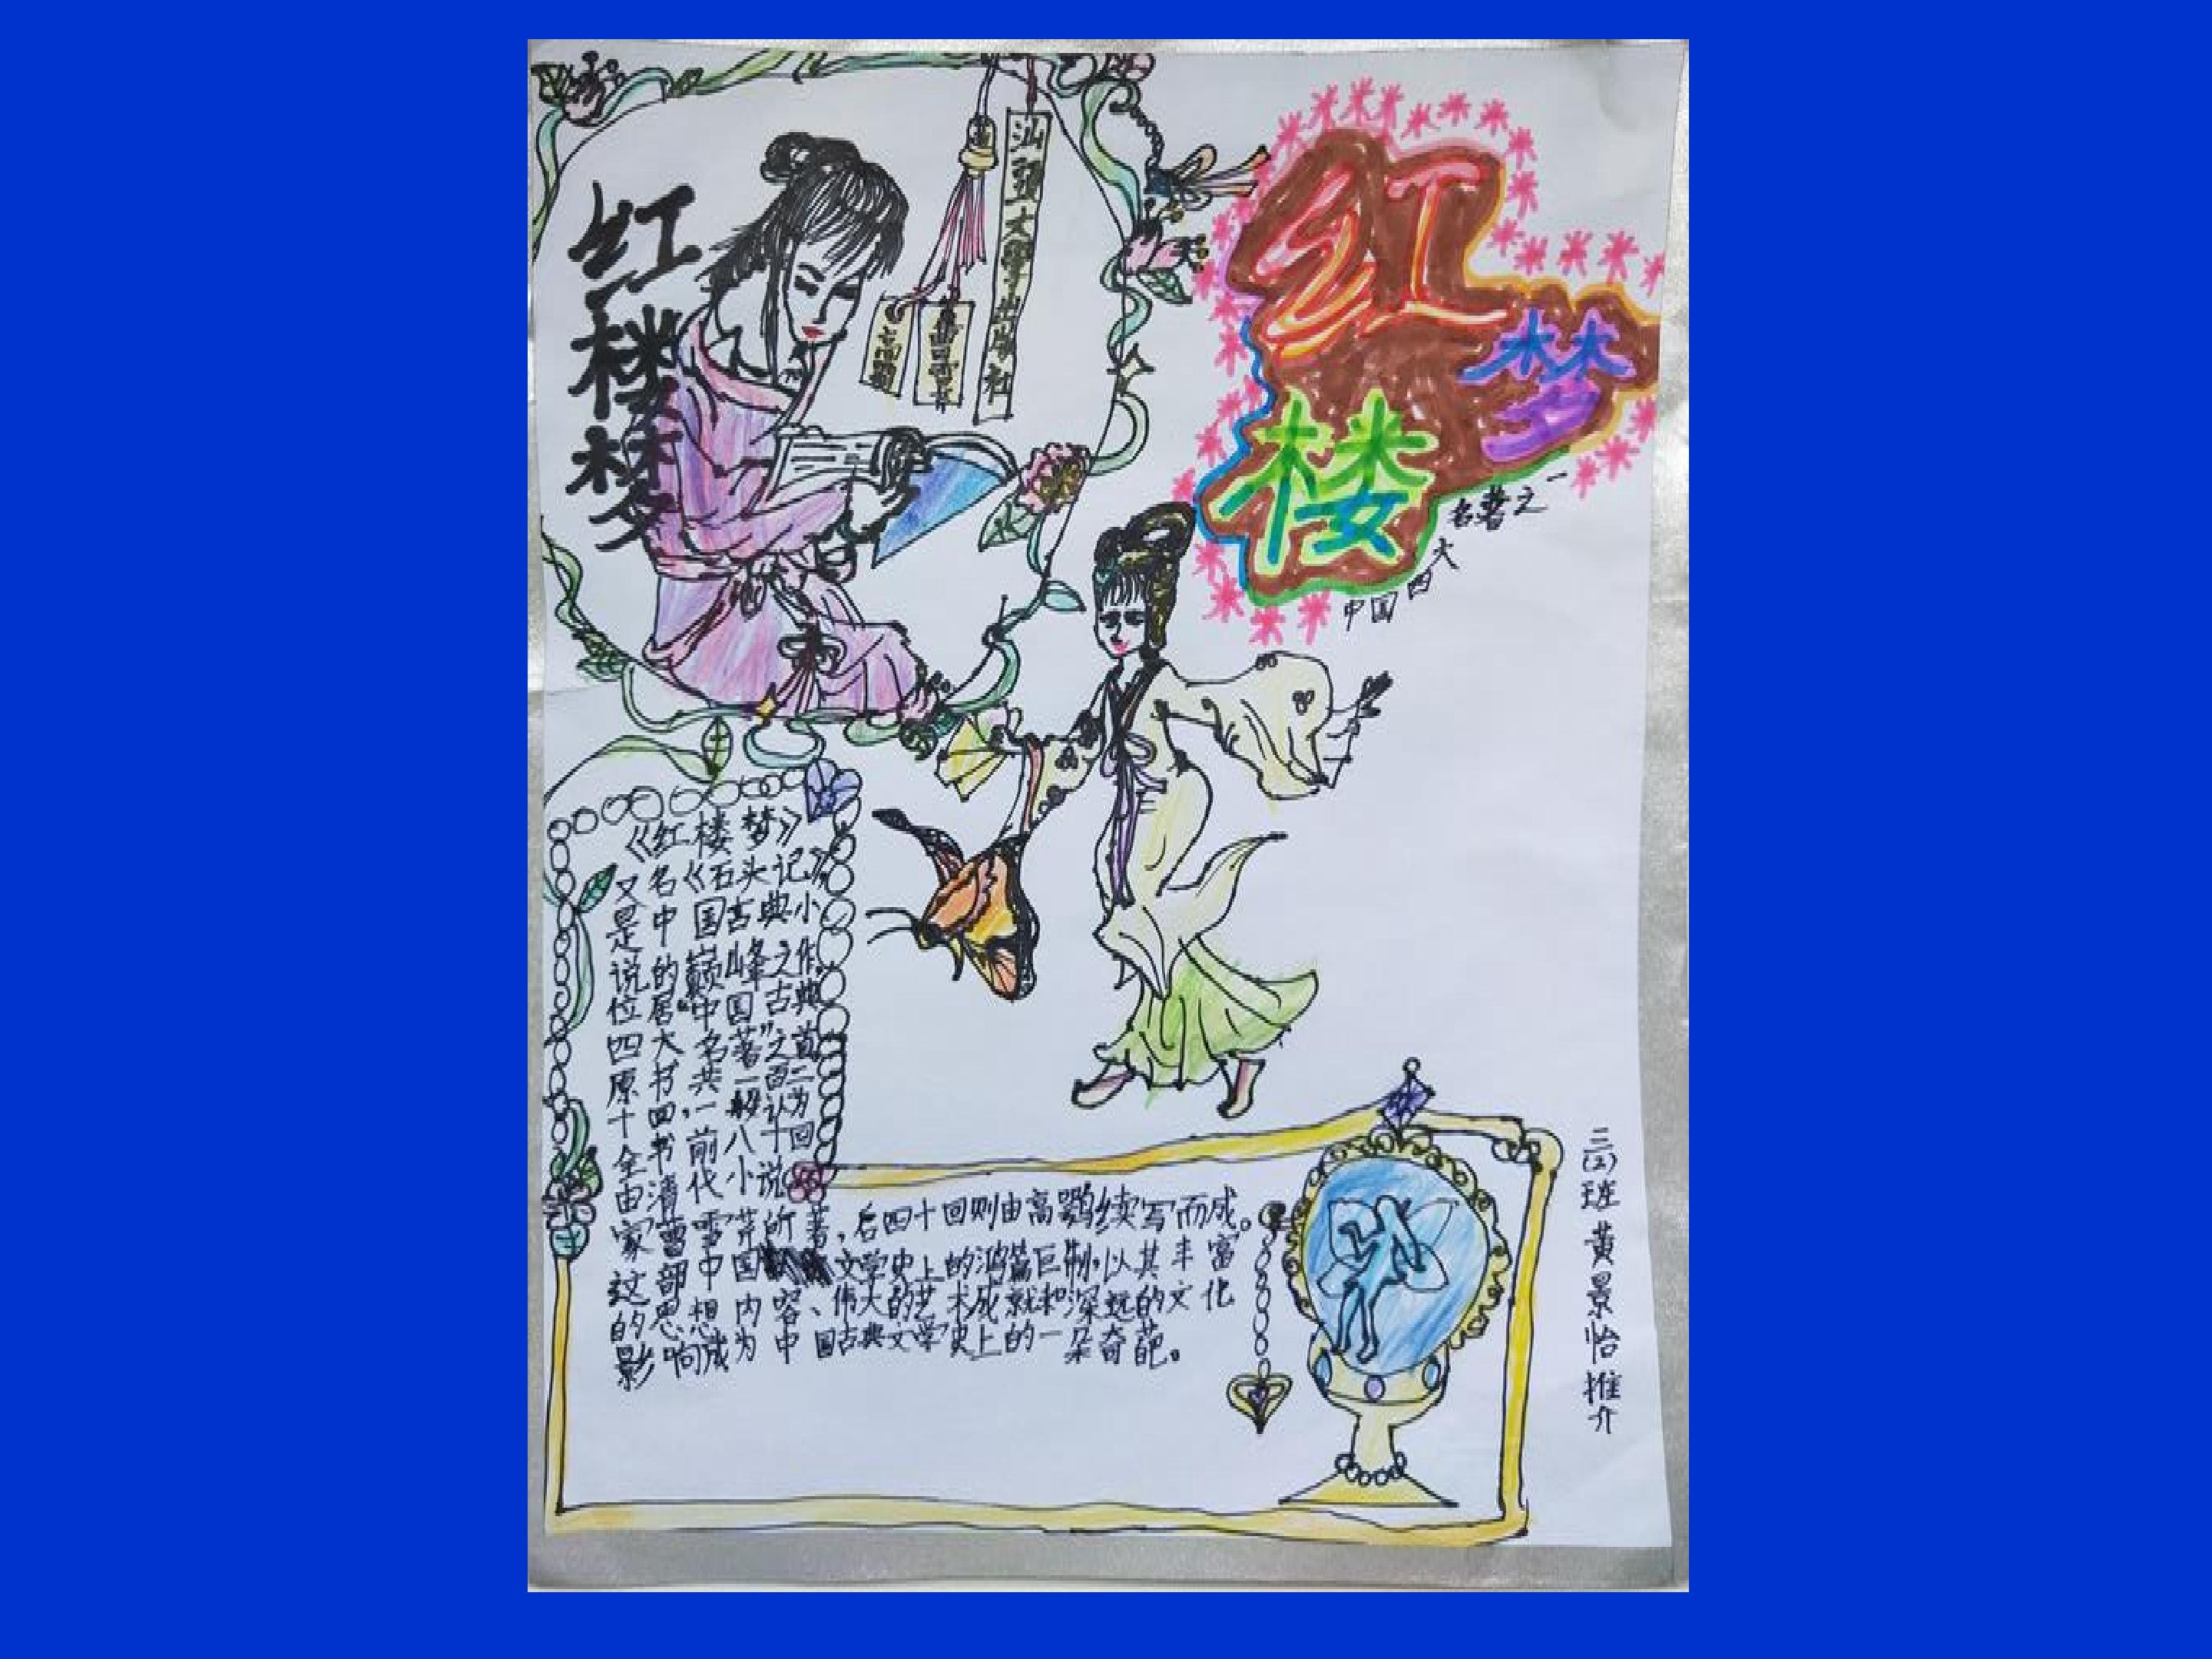 红楼梦
汕头大學出版社
红楼梦
中国四大名著之一
《红楼梦》
又名《石头记》
是中国古典小
说的巅峰之作,
位居“中国古典
四大名著”之首
原书共一百二
十回,一般认为
全书前八十回
由清代小说
家曹雪芹所著,后四十回则由高鹗续写而成。
这部中国文学史上的鸿篇巨制,以其丰富
的思想内容、伟大的艺术成就和深远的文化
影响成为中国古典文学史上的一朵奇葩。
三(2)班 黄景怡推介